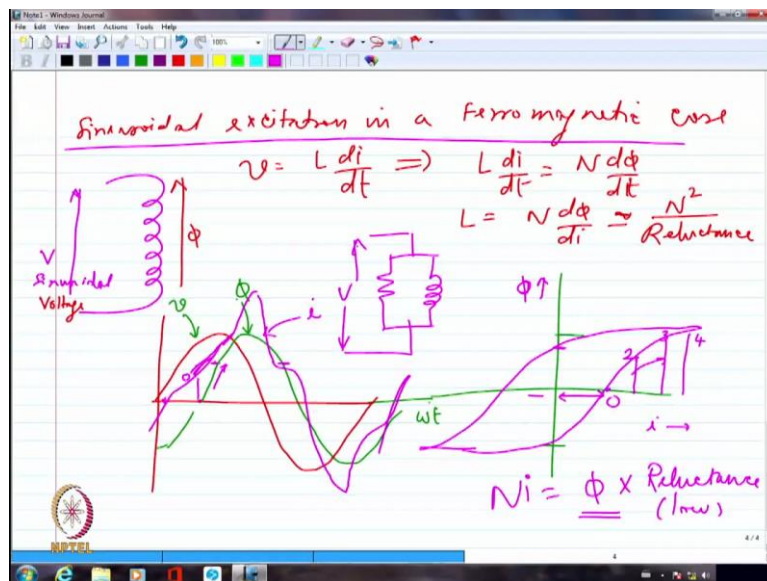 Note1 - Windows Journal
File Edit View Insert Actions Tools Help
100%
B I
Sinusoidal excitation in a Ferromagnetic core
v = L di/dt ⇒ L di/dt = N dΦ/dt
L = N dΦ/di = N²/Reluctance
V
Sinusoidal
Voltage
Φ
v
Φ
i
V
Φ↑
0
ωt
0
2
3
4
i →
Ni = Φ × Reluctance
(low)
NPTEL
4/4
4